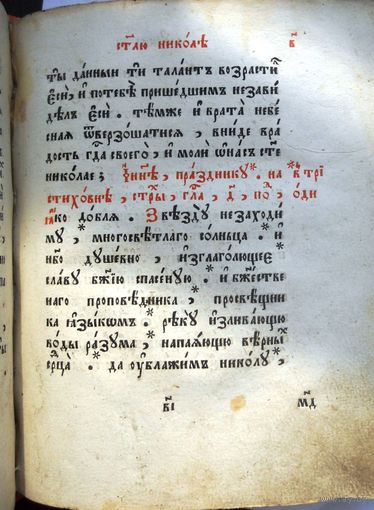 ст҃лю нико́лѣ в҃
ты̀ да́нныи ти̑ тала́нтъ возрасти́лъ
є҆сѝ, и҆ потебѣ̀ прише́дшимъ незави́
дѣлъ є҆сѝ . тѣ́мже и҆ врата̀ небе́
сная ѿверзо́шатися, вни́де вра́
дость гд҃а своего̀, и҆ молѝ ѡ҆на́съ ст҃е
нико́лае ; и҆ ны́нѣ, пра́зднику * на
стихо́внѣ, стр҃ы, гла́, д҃, по́, о҆ди
ꙗ҆́ко до́бля . Звѣзду̀ незаходи́
му , многосвѣ́тлаго со́лнъца . и҆
но душе́вно , и҆зглаго́лющее *
сла́ву бж҃ию спасе́ную * и҆ бж҃естве
наго проповѣ́дника , просвѣщни
ка ꙗ҆зы́комъ . рѣку̀ и҆злива́ющю
во́ды ра́зума , * напая́ющю вѣ́рныѧ
се́рца * . да оублажи́мъ нико́лу ,
в҃і м҃д